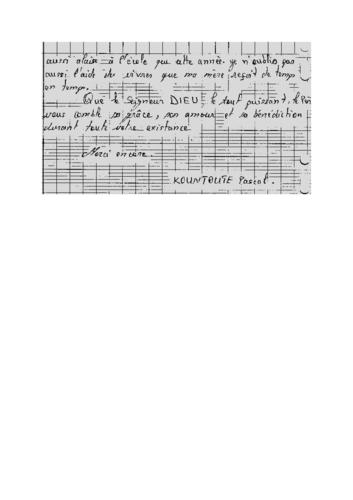 aussi alain à l'école que cette année. je n'oublie pas
aussi l'aide des vivres que ma mère reçoit de temps
en temps.
Que le Seigneur DIEU, le tout puissant, le
vous comble sa grâce, son amour et sa bénédiction
durant toute votre existance
Merci encore.
KOUNTOUTE Pascal.